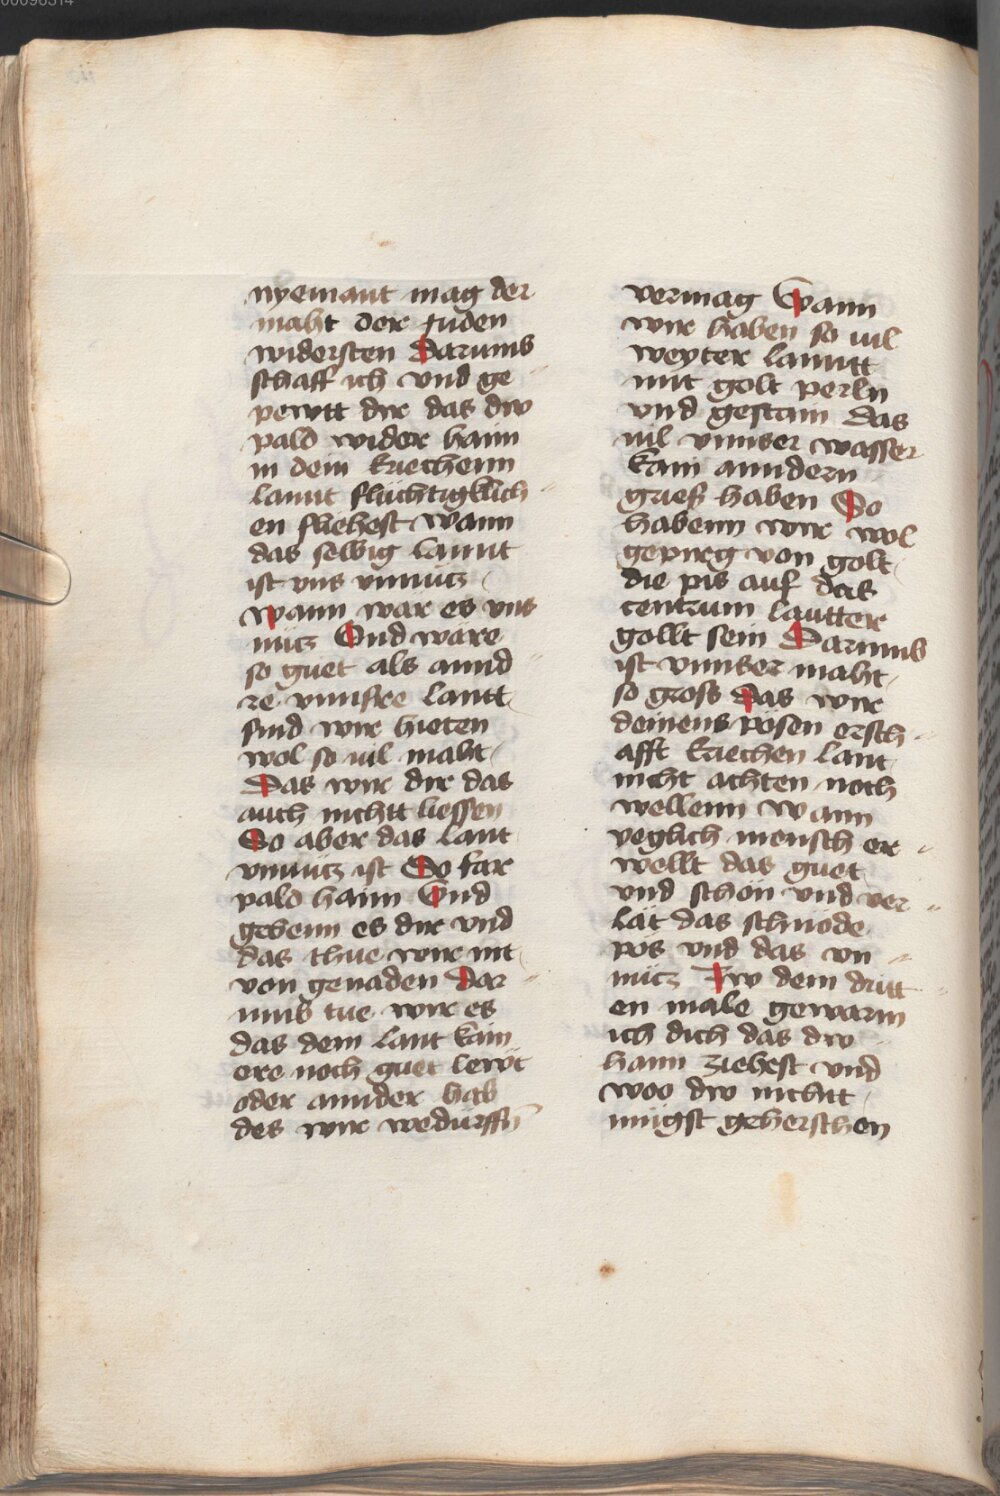 nyemant mag der
maht der Juden
widersten Darumb
schaff ich vnd ge
pewtt dir das dw
pald wider haim
in dein kriechenn
lannt fluchtigklich
en fliehest wann
das selbig lannt
ist vns vnnucz
wann war es vns
nucz Vnd wäre
so guet als annd
re vnnsre lantt
sind wir hieten
wol so uil maht
Das wir dir das
auch nichtt liessen
So aber das lant
vnnucz ist So far
pald haim Vnd
gebenn es dir vnd
das thue wir nit
von genaden Dar
umb tue wir es
das dem lant kain
ere noch guet lewt
oder annder hab
des wir wedürffn
vermag Wann
wir haben so uil
weyter lanntt
mit golt perln
vnd gestain das
uil vnnser wasser
kain anndern
grieß haben So
habenn wir wol
gepirg von golt
die pis auf das
centrum lautter
gollt sein Darumb
ist vnnser maht
so gross das wir
deinens pösen ersch
afft kriechen lant
nicht achten noch
wellenn Wann
yeglich mensch er
wellt das guet
vnd schön vnd ver
lät das schnöde
pös vnd das vn
nucz Zw dem dritt
en male gewarin
ich dich das dw
haim ziehest vnd
woo dw nichtt
mugst geherschen